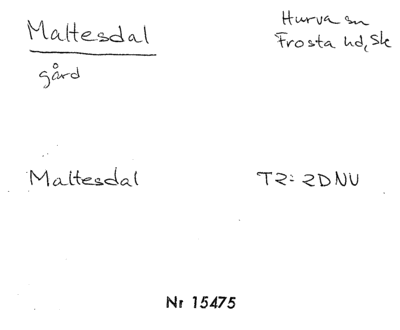 Maltesdal
Hurva sn
Frosta hd, Sk
gård
Maltesdal
T2: 2DNU
Nr 15475